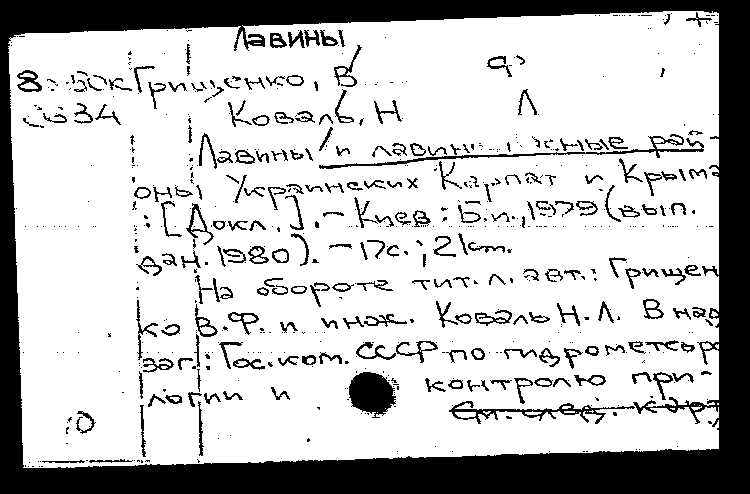 Лавины
Грищенко, В Ф
Коваль, Н Л
Лавины и рай-
оны Украинских Карпат и Крыма
: [Докл.]. – Киев : Б.и., 1979 (вып.
дан. 1980). – 17с.; 21см.
На обороте тит. л. авт.: Грищен
ко В.Ф. и инж. Коваль Н.Л. В над
заг.: Гос. ком. СССР по гидрометеоро
логии и контролю при-
См. след. карт